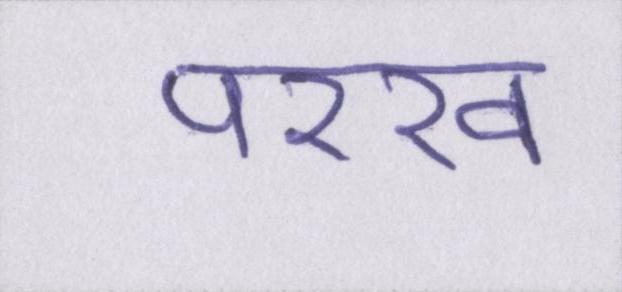 परख